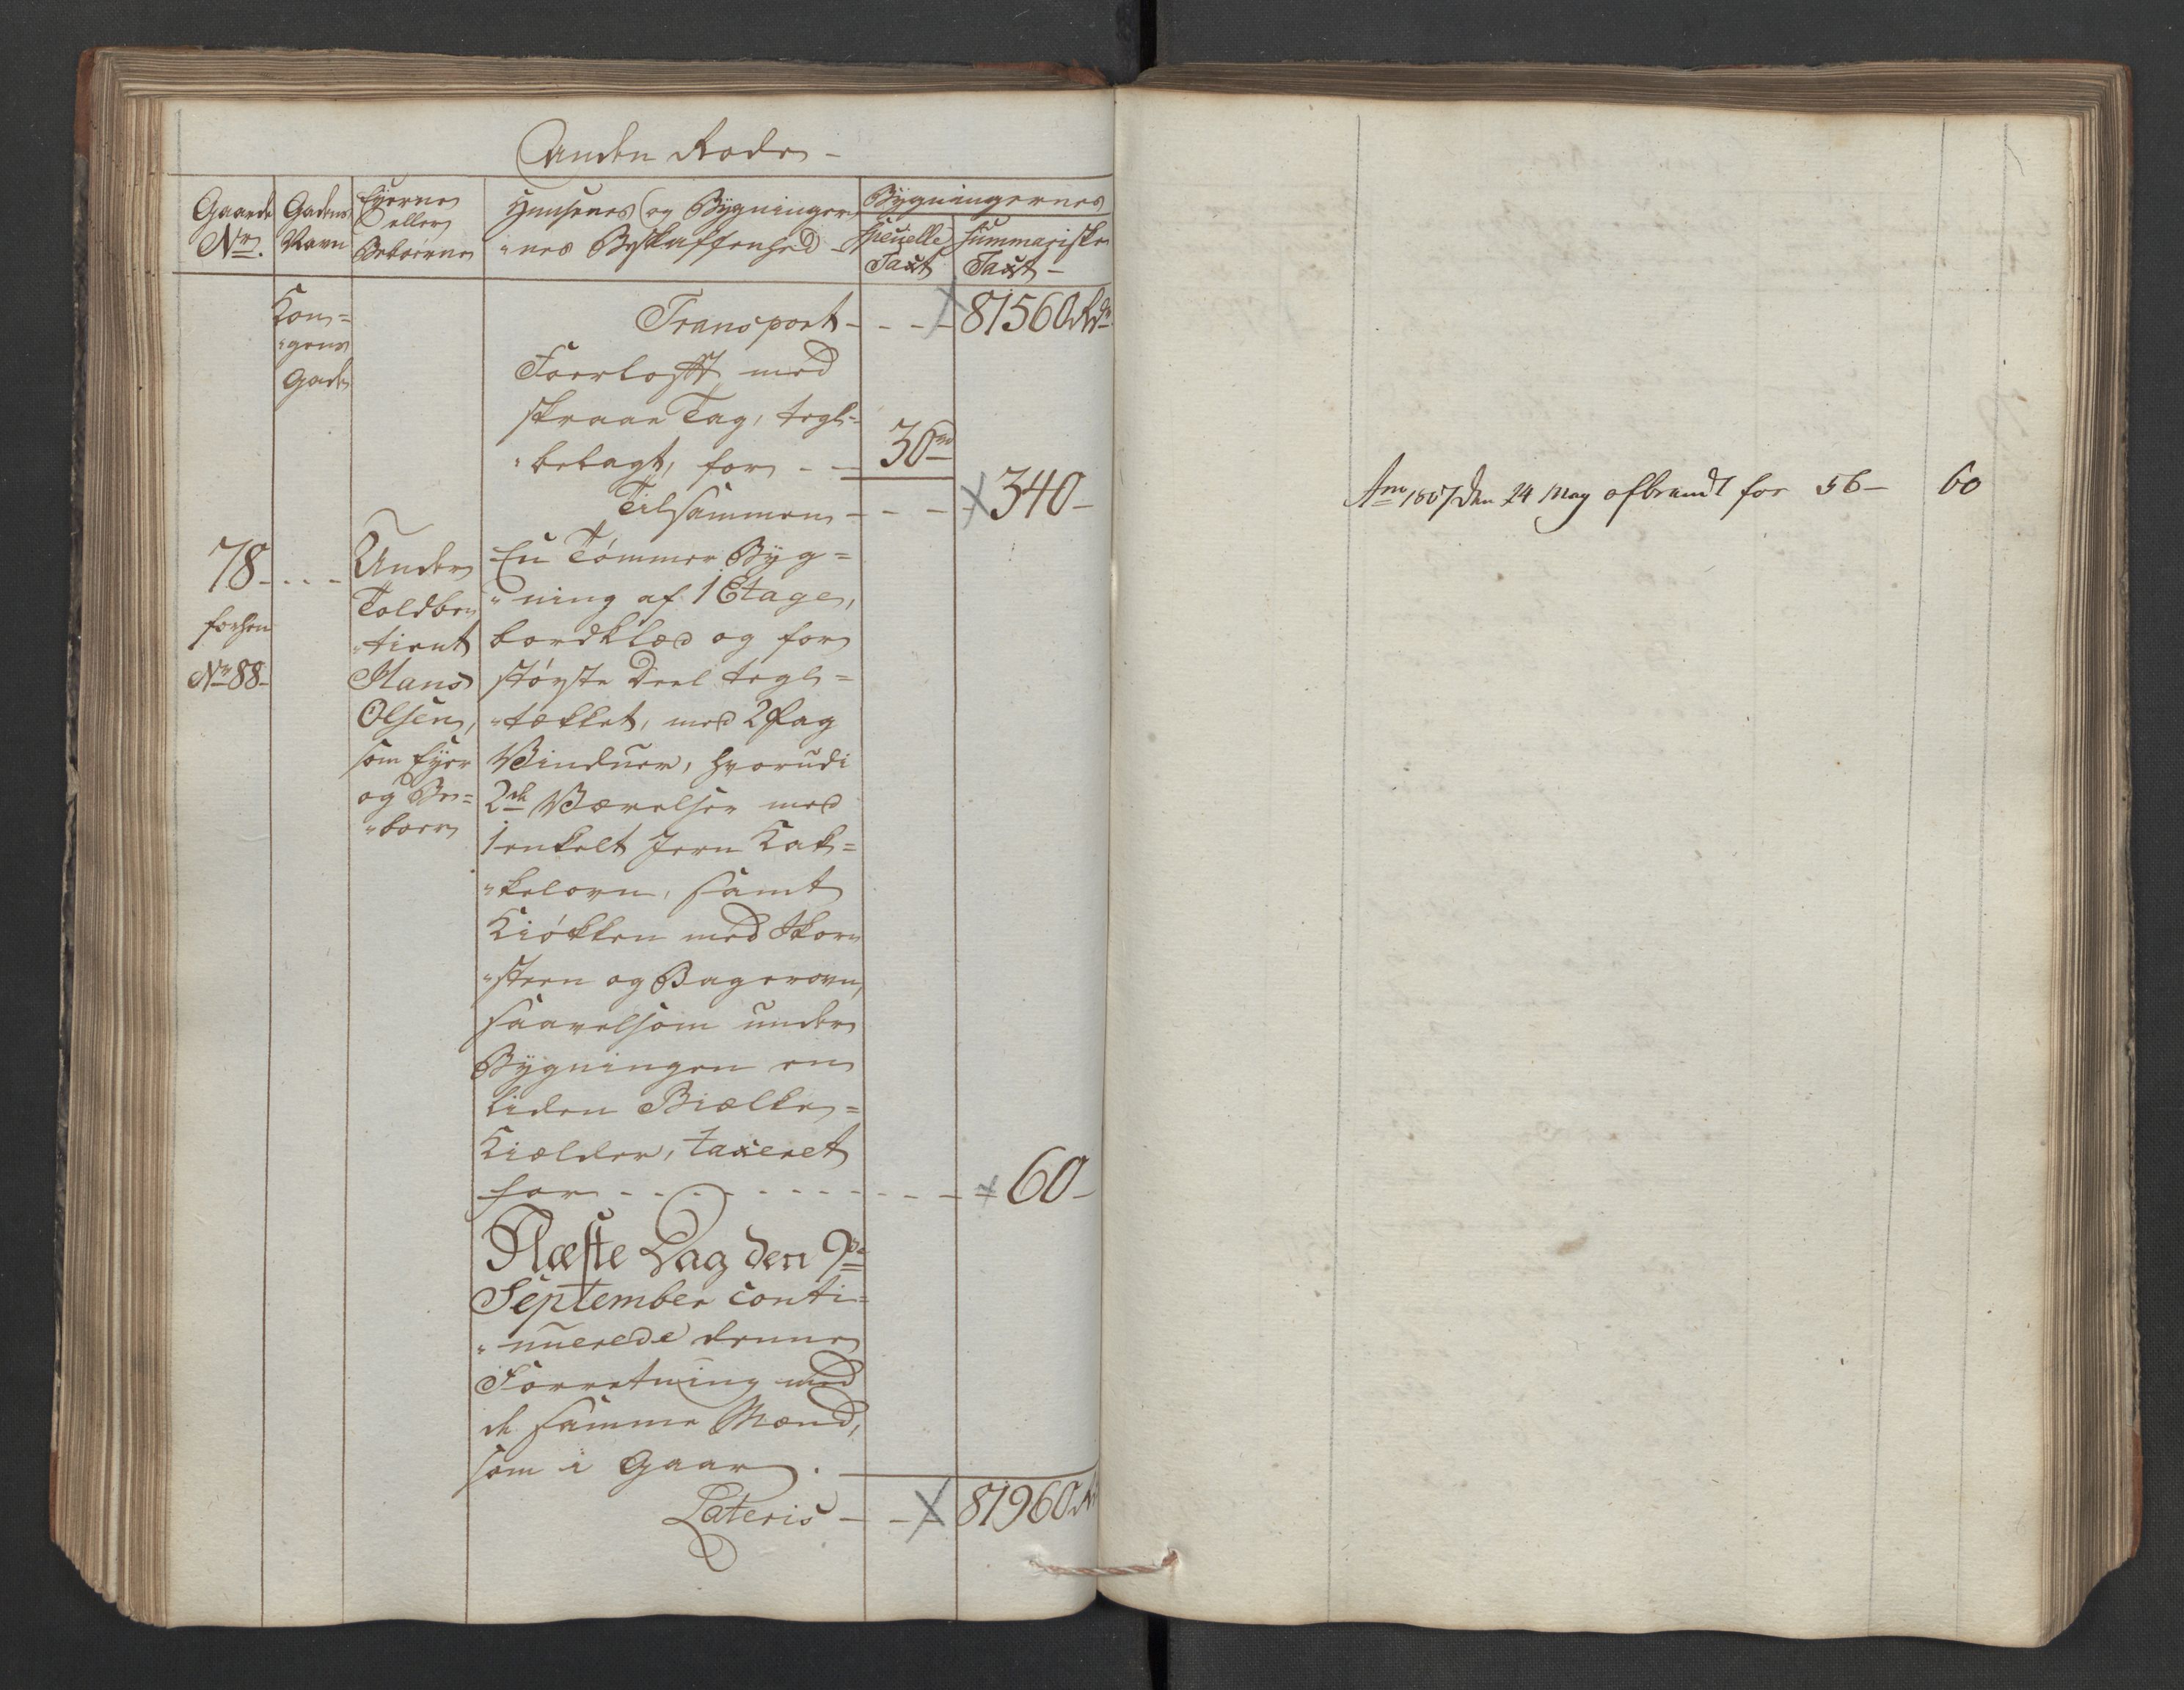 Anden Rode –
Gaarde Nr.
Gadens Navn
Eyerne eller Beboerne
Huusenes og Bygninger-
"nes Beskaffenhed –
Bygningernes
Specielle Taxt
Summariske Taxt –
Kon=
"gens
Gade
Transport – – – 81560 Rdr
Foerloft med
skraae Tag, tegl=
"belagt, for – – 30
Tilsammen – – – 340 –
78 – – –
forhen
Nr 88 –
Under
Toldbe
"tient
Hans
Olsen,
som Eyer
og Be=
"boer
En Tømmer Byg=
"ning af 1 Etage,
bordklæd og for
største Deel tegl=
"tækket, med 2 Fag
Vinduer, hvorudi
2de Værelser med
1 enkelt Jern Kak=
"kelovn, samt
Kiøkken med Skor
"steen og Bagerovn,
saavelsom under
Bygningen en
liden Biælke=
Kielder, taxeret
for – – – – – – – – – 60 –
Næste Dag den 9de
September conti=
"nuerede denne
Forretning med
de samme Mænd,
som i Gaar.
Lateris – – 81960 Rd
Ano 1807 den 24 May afbrandt for 56 – 60